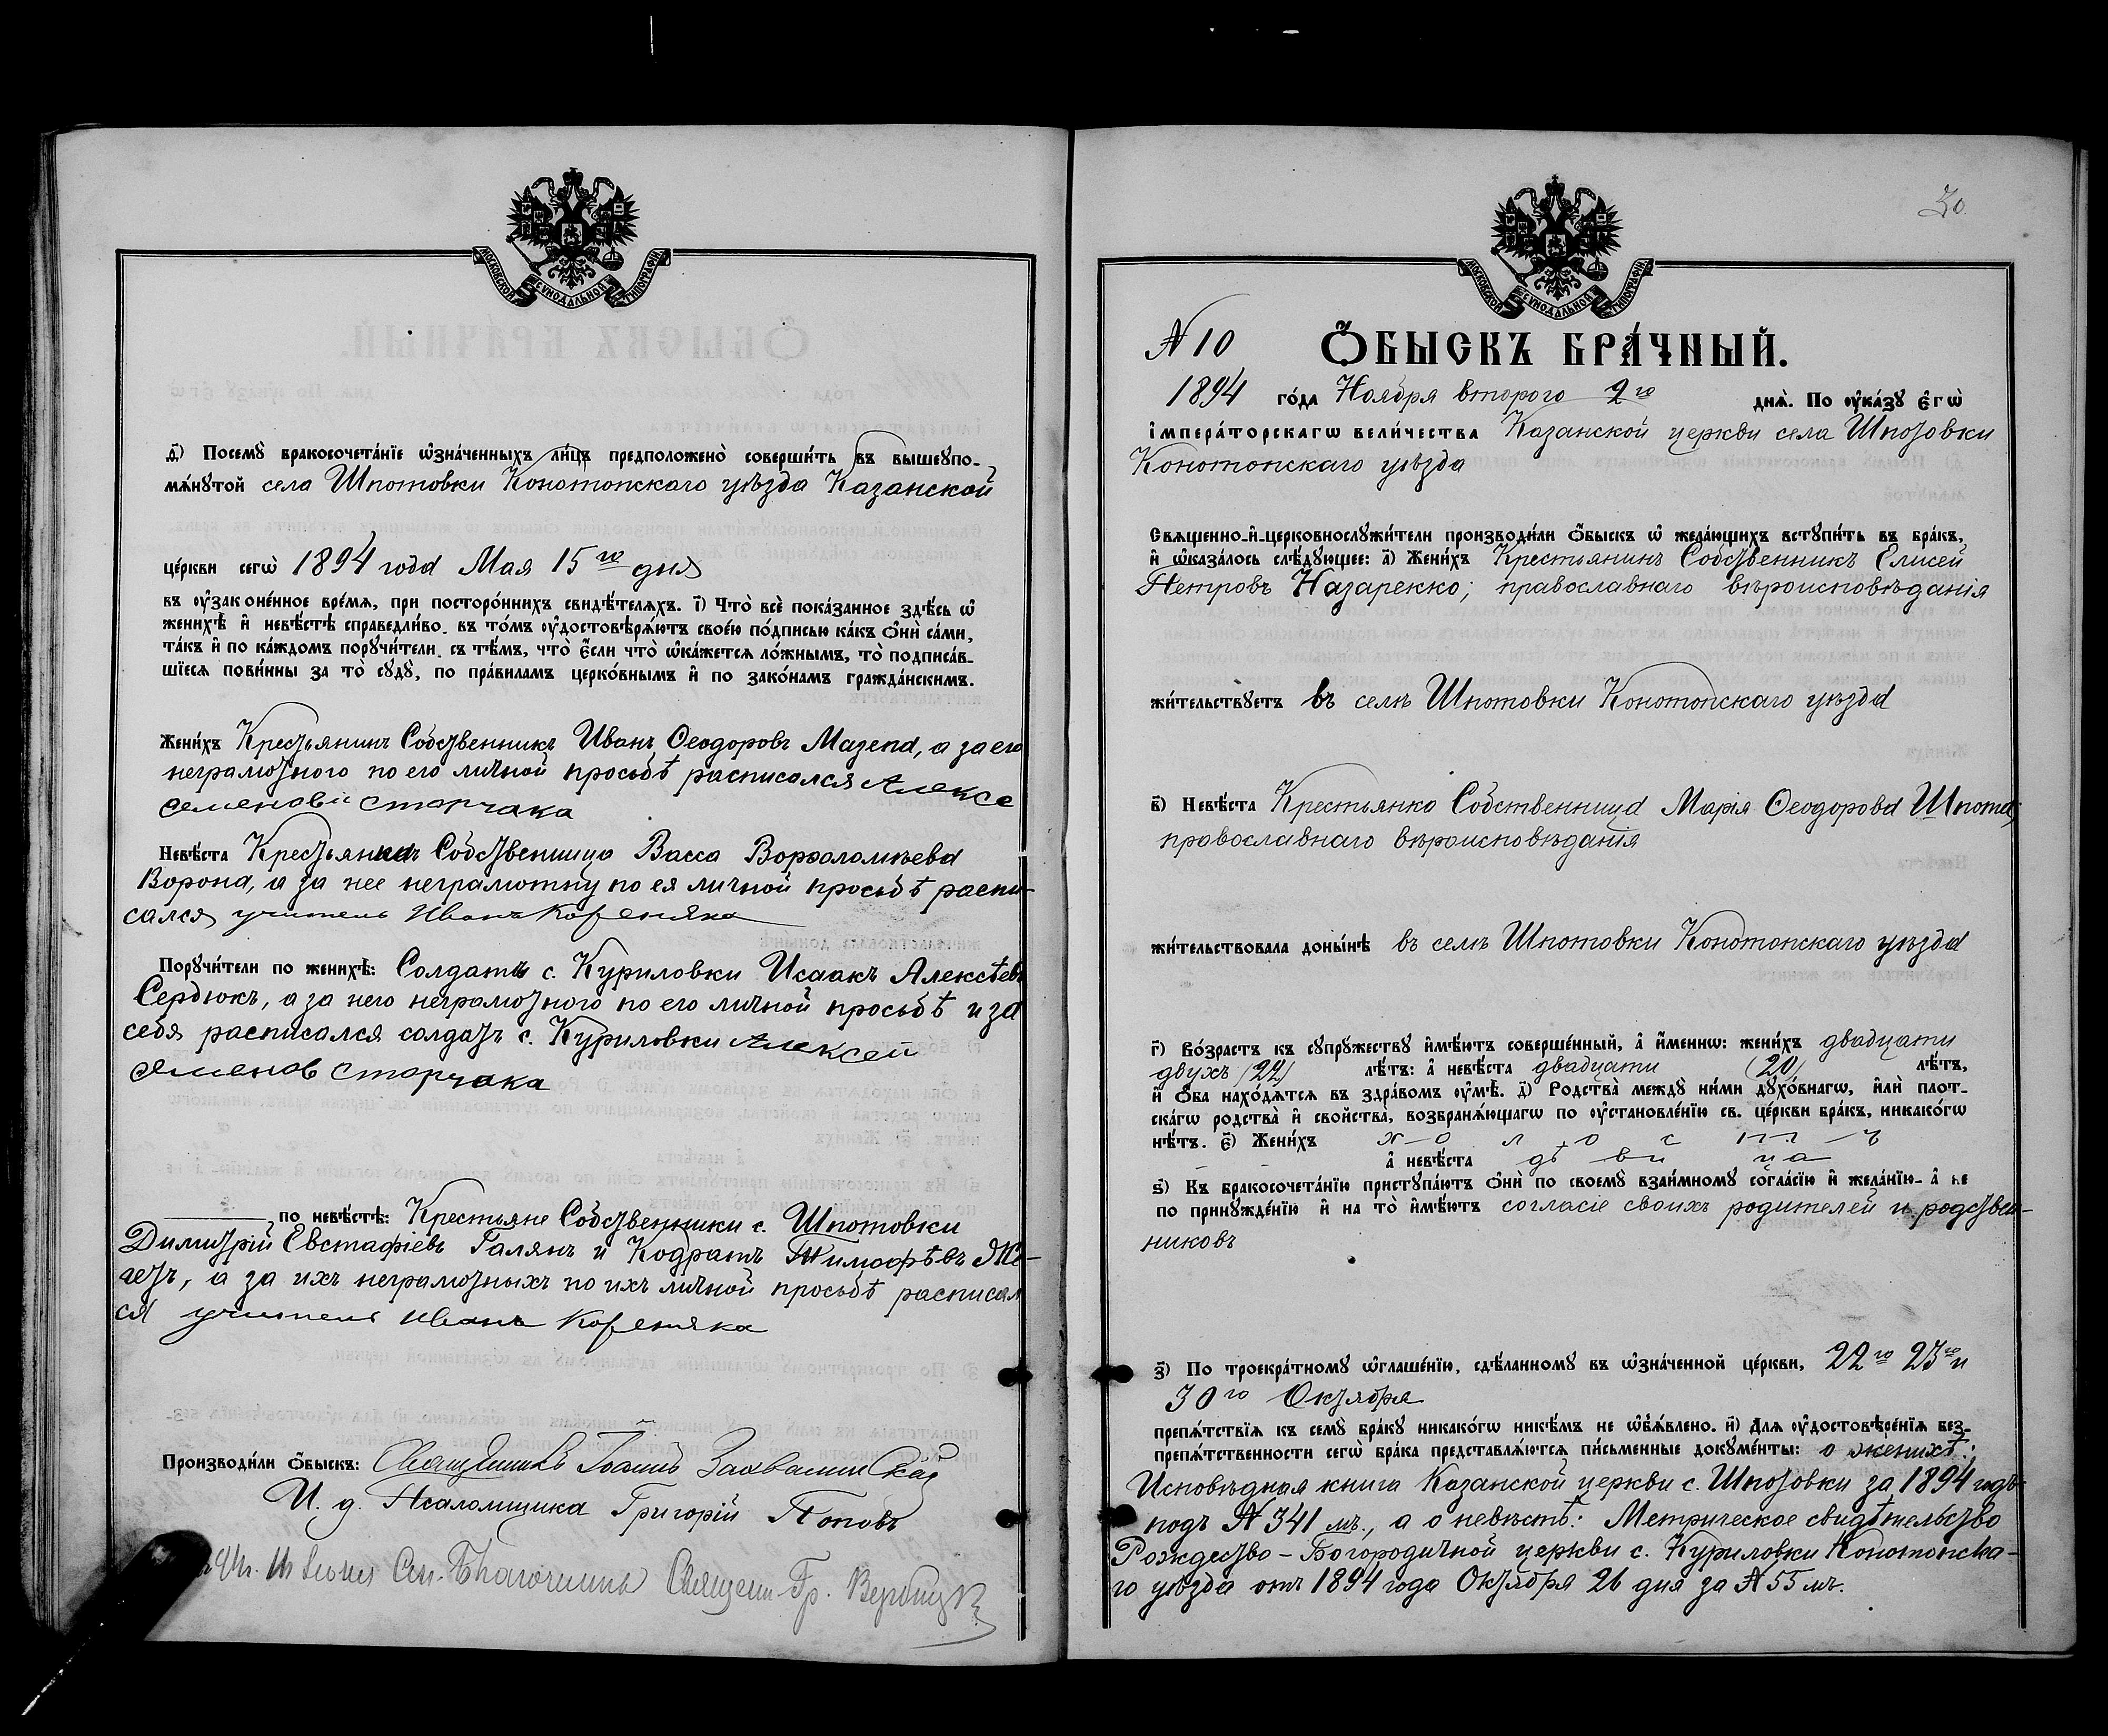 МОСКОВСКОЙ СѴНОДАЛЬНОЙ ТИПОГРАФІИ
д҃) Посемꙋ̀ бракосочета́нїе ѡ҆зна́ченныхъ ли́цъ предположено̀ соверши́ть въ вышеꙋпо-
мѧ́нꙋтой села Шпотовки Конотопскаго уѣзда Казанской
це́ркви сегѡ̀ 1894 года Мая 15го дня
въ ᲂу҆зако́ненное вре́мѧ, при посторо́ннихъ свидѣ́телѧхъ. і҃) Что̀ всѐ пока́занное здѣ́сь ѡ҆
женихѣ̀ и҆ невѣ́стѣ справедли́во, въ то́мъ ᲂу҆достовѣрѧ́ютъ свое́ю по́дписью ка́къ ѻ҆нѝ са́ми,
та́къ и҆ по ка́ждомъ порꙋчи́тели, съ тѣ́мъ, что̀ є҆́сли что̀ ѡ҆ка́жетсѧ ло́жнымъ, то̀ подписа́в-
шїесѧ пови́нны за то̀ сꙋдꙋ̀, по пра́виламъ церко́внымъ и҆ по зако́намъ гражда́нскимъ.
Жени́хъ Крестьянинъ Собственникъ Иванъ Ѳеодоровъ Мазепа, а за его
неграмотного по его личной просьбѣ расписался Алексе
Семенови Сторчака
Невѣ́ста Крестьянка Собственница Васса Варѳоломѣева
Ворона, а за нее неграмотну по ея личной просьбѣ распи-
сался учитель Иванъ Кореняка
Порꙋчи́тели по женихѣ̀: Солдаты с. Куриловки Исаакъ Алексѣевъ
Сердюкъ, а за него неграмотного по его личной просьбѣ и за
себя расписался солдатъ с. Куриловки Алексей
Семенов Сторчака
по невѣ́стѣ: Крестьяне Собственники с. Шпотовки
Димитрій Евстафіевъ Галянъ и Кодратъ Тимофѣевъ
а за ихъ неграмотныхъ по ихъ личной просьбѣ расписал
ся учитель Иванъ Кореняка
Производи́ли ѻ҆́быскъ: Священникъ Іоаннъ
И. д. Псаломщика Григорій Поповъ
Благочинный Священ. Гр. Вербицкі
30.
МОСКОВСКОЙ СѴНОДАЛЬНОЙ ТИПОГРАФІИ
№ 10 Ѻ҆́БЫСКЪ БРА́ЧНЫЙ.
1894 го́да Ноября второго 2го днѧ̀. По ᲂу҆ка́зꙋ є҆гѡ̀
і҆мпера́торскагѡ вели́чества Казанской церкви села Шпотовки
Конотопскаго уѣзда
Свѧще́нно-и҆-церковнослꙋжи́тели производи́ли ѻ҆́быскъ ѡ҆ жела́ющихъ встꙋпи́ть въ бра́къ,
и҆ ѡ҆каза́лось слѣ́дꙋющее: а҃) Жени́хъ Крестьянинъ Собственникъ Елисей
Петровъ Назаренко; православнаго вѣроисповѣданія
жи́тельствꙋетъ въ селѣ Шпотовки Конотопскаго уѣзда
в҃) Невѣ́ста Крестьянка Собственница Марія Ѳеодорова Шпота;
православнаго вѣроисповѣданія
жи́тельствовала доны́нѣ въ селѣ Шпотовки Конотопскаго уѣзда
г҃) Во́зрастъ къ сꙋпрꙋ́жествꙋ и҆мѣ́ютъ соверше́нный, а҆ и҆́меннѡ: жени́хъ двадцати
двухъ (22) лѣ́тъ: а҆ невѣ́ста двадцати (20) лѣ́тъ,
и҆ ѻ҆́ба нахо́дѧтсѧ въ здра́вомъ ᲂу҆мѣ̀. д҃) Родства̀ междꙋ̀ ни́ми дꙋхо́внагѡ, и҆лѝ плот-
ска́гѡ родства̀ и҆ сво́йства, возбранѧ́ющагѡ по ᲂу҆становле́нїю св. це́ркви бра́къ, никако́гѡ
нѣ́тъ. є҃) Жени́хъ хо ло стъ
а҆ невѣ́ста дѣ ви ца
ѕ҃) Къ бракосочета́нїю пристꙋпа́ютъ ѻ҆нѝ по своемꙋ̀ взаи́мномꙋ согла́сїю и҆ жела́нїю- а҆ не
по принꙋжде́нїю и҆ на то̀ и҆мѣ́ютъ согласіе своихъ родителей и родствен-
никовъ
з҃) По троекра́тномꙋ ѡ҆глаше́нїю, сдѣ́ланномꙋ въ ѡ҆зна́ченной це́ркви, 22го 23го и
30го Октября
препѧ́тствїѧ къ семꙋ̀ бра́кꙋ никако́гѡ никѣ́мъ не ѡ҆б̾ѧ́влено. и҃) Для ᲂу҆достовѣре́нїѧ без-
препѧ́тственности сегѡ̀ бра́ка представлѧ́ютсѧ пи́сьменные докꙋме́нты: о женихѣ:
Исповѣдная книга Казанской церкви с. Шпотовки за 1894 годъ
подъ № 341 мъ., а о невѣстѣ: Метрическое свидѣтельство
Рождество-Богородичной церкви с. Куриловки Конотопска-
го уѣзда отъ 1894 года Октября 26 дня за № 55 мъ.